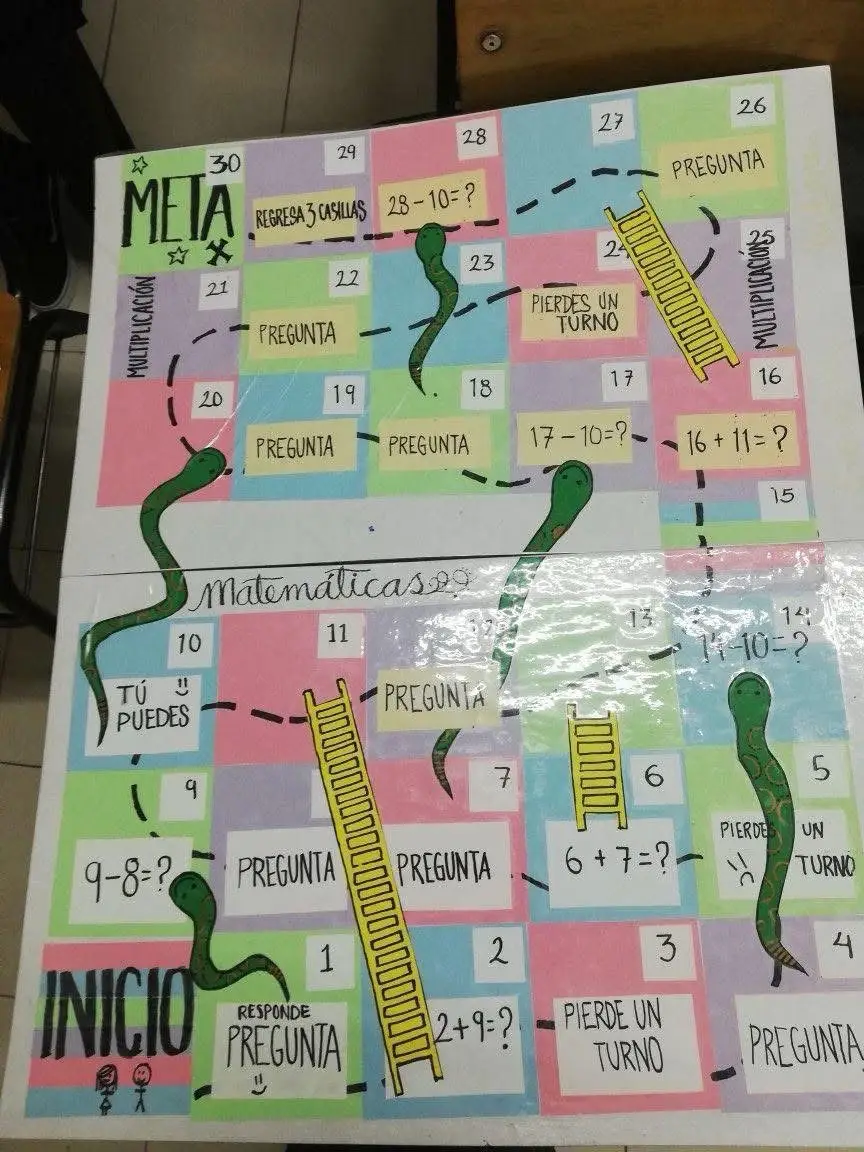 30
META
29
REGRESA 3 CASILLAS
28
28 - 10 = ?
27
26
PREGUNTA
21
MULTIPLICACIÓN
22
PREGUNTA
23
24
PIERDES UN
TURNO
25
MULTIPLICACIÓN
20
19
PREGUNTA
18
PREGUNTA
17
17 - 10 = ?
16
16 + 11 = ?
15
Matemáticas
10
TÚ
PUEDES
11
12
PREGUNTA
13
14
14 - 10 = ?
9
9 - 8 = ?
PREGUNTA
7
PREGUNTA
6
6 + 7 = ?
5
PIERDES UN
TURNO
INICIO
1
RESPONDE
PREGUNTA
2
2 + 9 = ?
3
PIERDE UN
TURNO
4
PREGUNTA